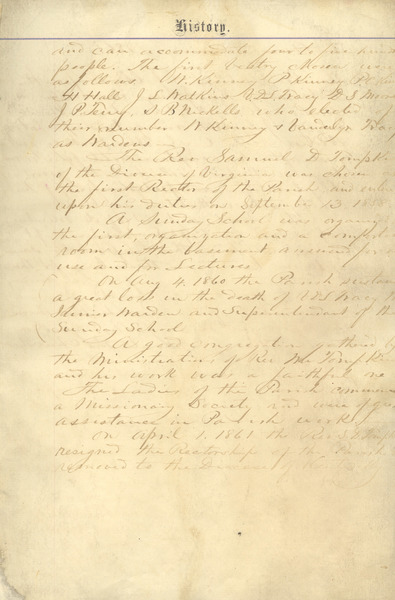 History.
and can accommodate four to five hund
people. The first Vestry chosen were
as follows W. Kinney P Kinney
Hall J L Watkins V D L Tracy D S
J P Terry S B Nickells who elected
their number W Kinney & Vandelyn Tracy
as Wardens
The Rev Samuel D Tompk
of the Diocese of Virginia was chosen
the first Rector of the Parish and enter
upon his duties on September 13 1858
A Sunday School was organiz
the first, organization and a comfort
room in the basement reserved for
use and for Lectures
On Aug 4, 1860 the Parish sustain
a great loss in the death of V D L Tracy
Junior Warden and Superintendent of th
Sunday School
A good congregation gathered by
the Ministrations of Rev Mr Tompk
and his work was a faithful one
The Ladies of the Parish commenc
a Missionary Society and were of gre
assistance in Parish work
On April 1. 1861 the Rev S D Tomp
resigned the Rectorship of the Parish
removed to the Diocese of